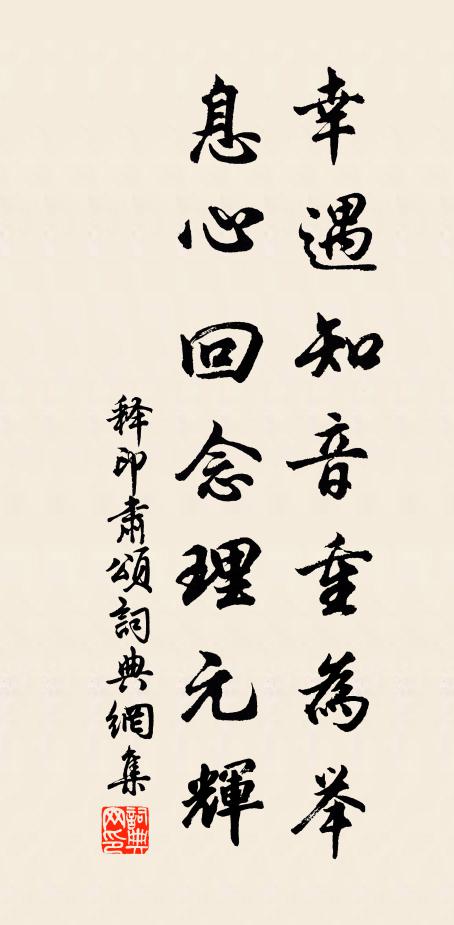 幸遇知音重為举
息心回念理元輝
释印肅頌詞典網集
詞典网印